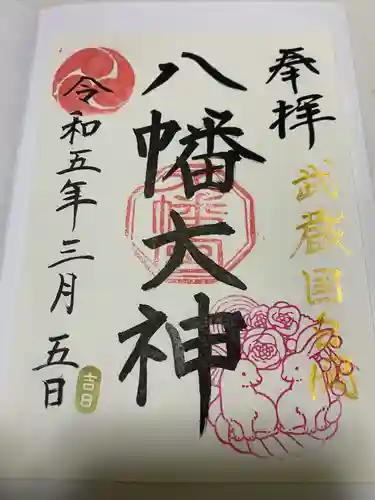 奉拝
武蔵国
八幡大神
令和五年三月五日
吉日